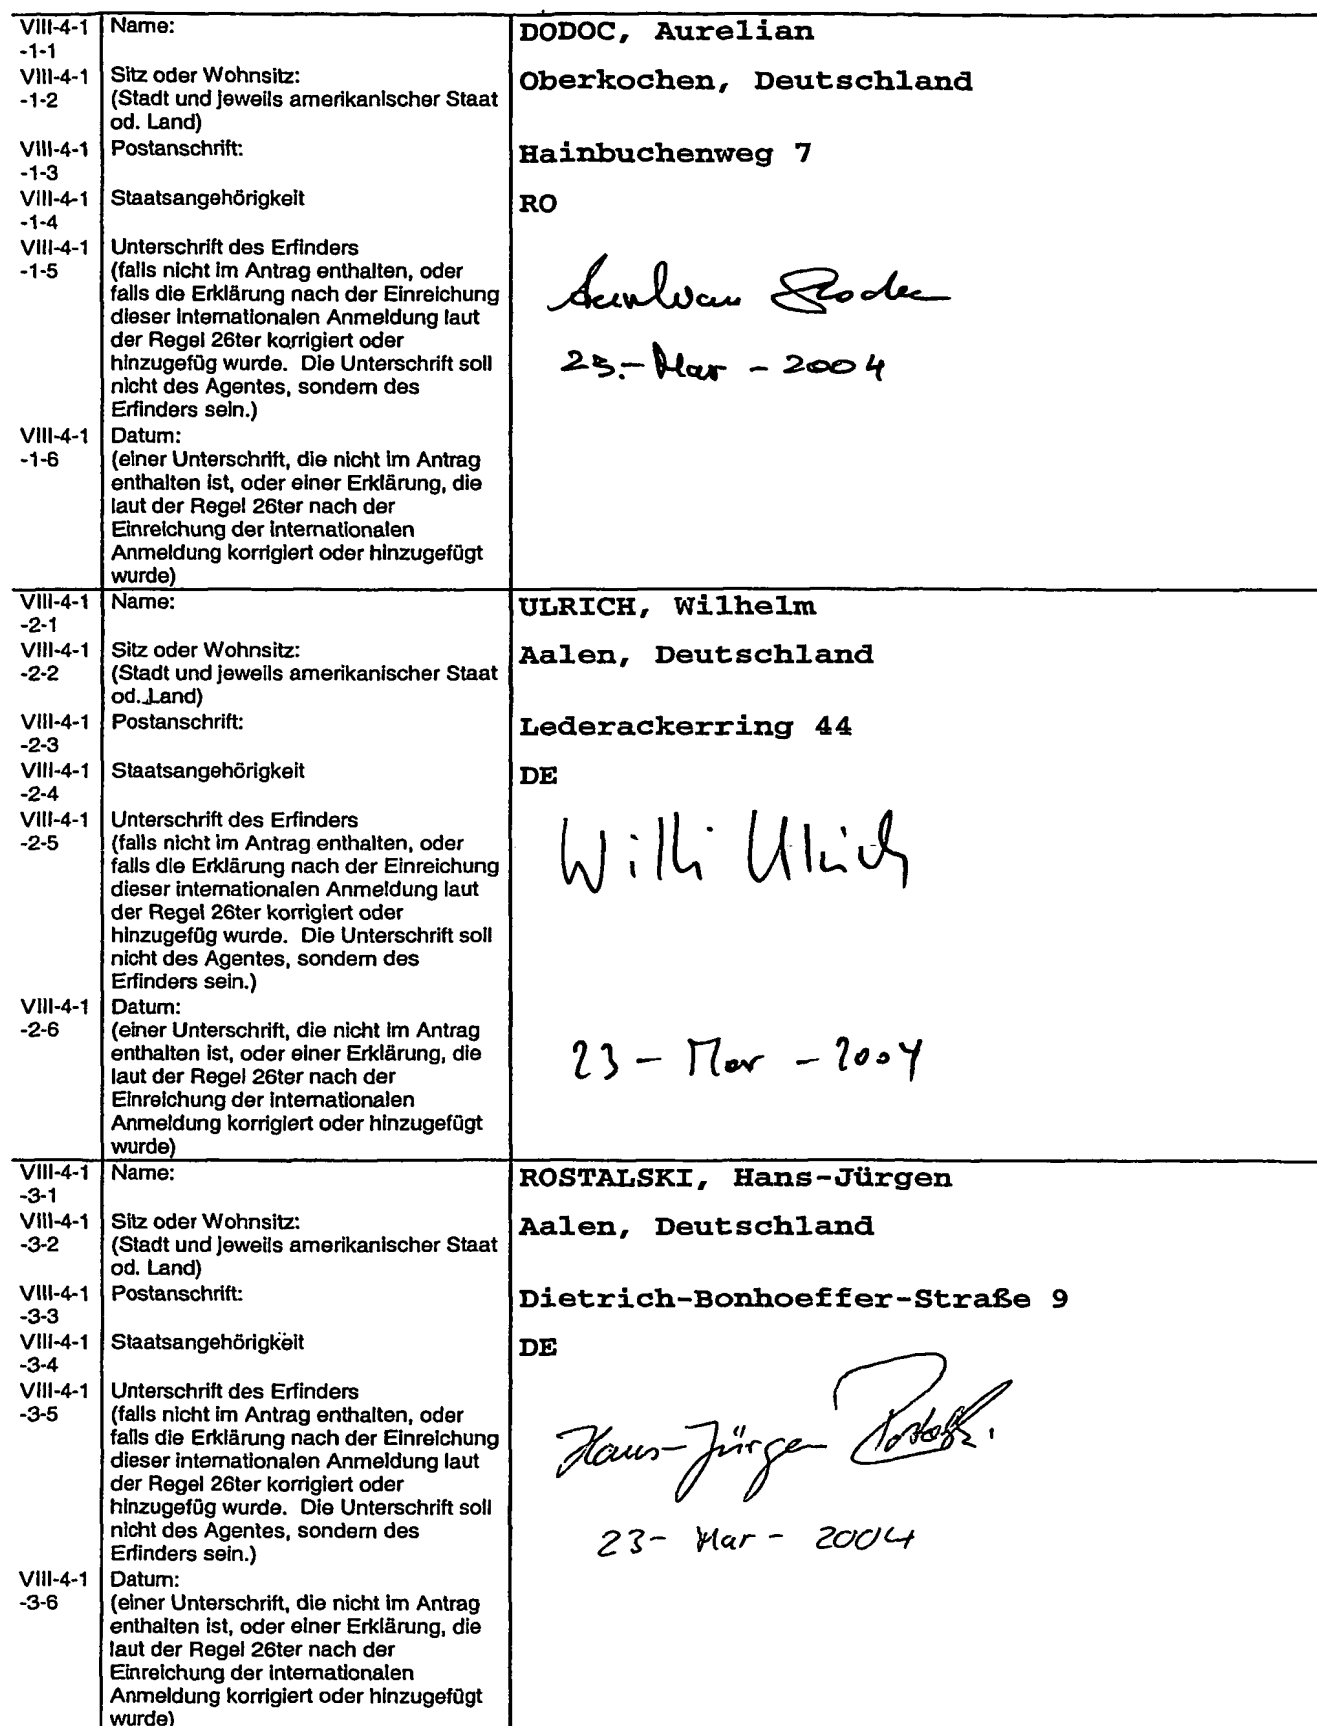 VIII-4-1 Name: DODOC, Aurelian
-1-1
VIII-4-1 Sitz oder Wohnsitz: Oberkochen, Deutschland
-1-2 (Stadt und jeweils amerikanischer Staat
od. Land)
VIII-4-1 Postanschrift: Hainbuchenweg 7
-1-3
VIII-4-1 Staatsangehörigkeit RO
-1-4
VIII-4-1 Unterschrift des Erfinders
-1-5 (falls nicht im Antrag enthalten, oder
falls die Erklärung nach der Einreichung
dieser internationalen Anmeldung laut
der Regel 26ter korrigiert oder
hinzugefüg wurde. Die Unterschrift soll
nicht des Agentes, sondern des
Erfinders sein.)
Aurelian Dodoc
23-Mar-2004
VIII-4-1 Datum:
-1-6 (einer Unterschrift, die nicht im Antrag
enthalten ist, oder einer Erklärung, die
laut der Regel 26ter nach der
Einreichung der internationalen
Anmeldung korrigiert oder hinzugefügt
wurde)
VIII-4-1 Name: ULRICH, Wilhelm
-2-1
VIII-4-1 Sitz oder Wohnsitz: Aalen, Deutschland
-2-2 (Stadt und jeweils amerikanischer Staat
od. Land)
VIII-4-1 Postanschrift: Lederackerring 44
-2-3
VIII-4-1 Staatsangehörigkeit DE
-2-4
VIII-4-1 Unterschrift des Erfinders
-2-5 (falls nicht im Antrag enthalten, oder
falls die Erklärung nach der Einreichung
dieser internationalen Anmeldung laut
der Regel 26ter korrigiert oder
hinzugefüg wurde. Die Unterschrift soll
nicht des Agentes, sondern des
Erfinders sein.)
Willi Ulrich
VIII-4-1 Datum:
-2-6 (einer Unterschrift, die nicht im Antrag
enthalten ist, oder einer Erklärung, die
laut der Regel 26ter nach der
Einreichung der internationalen
Anmeldung korrigiert oder hinzugefügt
wurde)
23 - Mar - 2004
VIII-4-1 Name: ROSTALSKI, Hans-Jürgen
-3-1
VIII-4-1 Sitz oder Wohnsitz: Aalen, Deutschland
-3-2 (Stadt und jeweils amerikanischer Staat
od. Land)
VIII-4-1 Postanschrift: Dietrich-Bonhoeffer-Straße 9
-3-3
VIII-4-1 Staatsangehörigkeit DE
-3-4
VIII-4-1 Unterschrift des Erfinders
-3-5 (falls nicht im Antrag enthalten, oder
falls die Erklärung nach der Einreichung
dieser internationalen Anmeldung laut
der Regel 26ter korrigiert oder
hinzugefüg wurde. Die Unterschrift soll
nicht des Agentes, sondern des
Erfinders sein.)
Hans-Jürgen
23- Mar - 2004
VIII-4-1 Datum:
-3-6 (einer Unterschrift, die nicht im Antrag
enthalten ist, oder einer Erklärung, die
laut der Regel 26ter nach der
Einreichung der internationalen
Anmeldung korrigiert oder hinzugefügt
wurde)